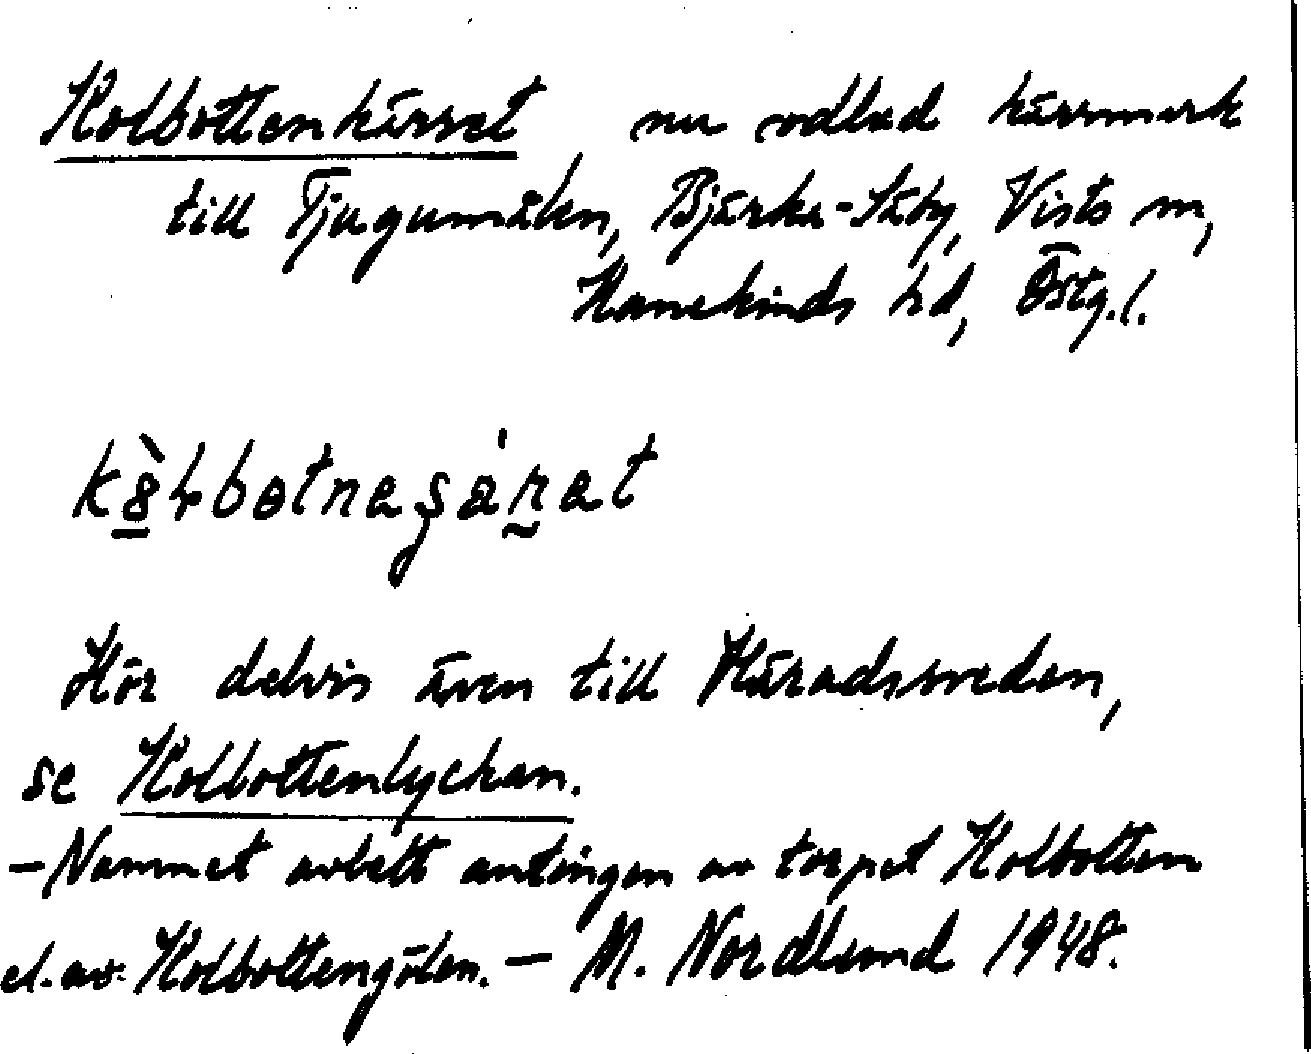 Kolbottenkärret, nu odlad kärrmark
till Tjugumålen, Bjärka-Säby, Vists sn,
Hanekinds hd, Östg.l.
Hör delvis även till Häradssveden,
se Kolbottenlyckan.
– Namnet avlett antingen av torpet Kolbotten
el. av Kolbottengölen. – M. Nordlund 1948.